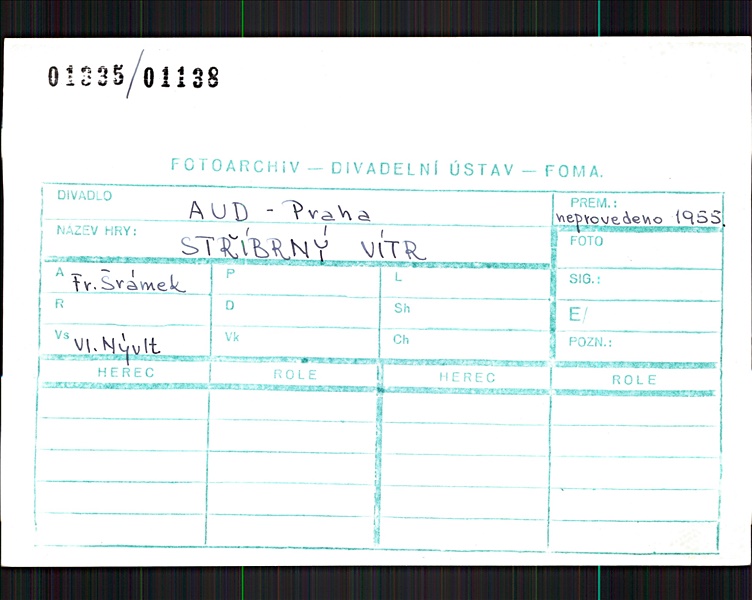 01335/01138
FOTOARCHIV — DIVADELNÍ ÚSTAV — FOMA.
DIVADLO AUD - Praha
PREM.: neprovedeno 1955.
NÁZEV HRY: STŘÍBRNÝ VÍTR
FOTO
A Fr. Šrámek P L
SIG.:
R D Sh
E/
Vs Vl. Nývlt Vk Ch
POZN.:
HEREC ROLE HEREC ROLE